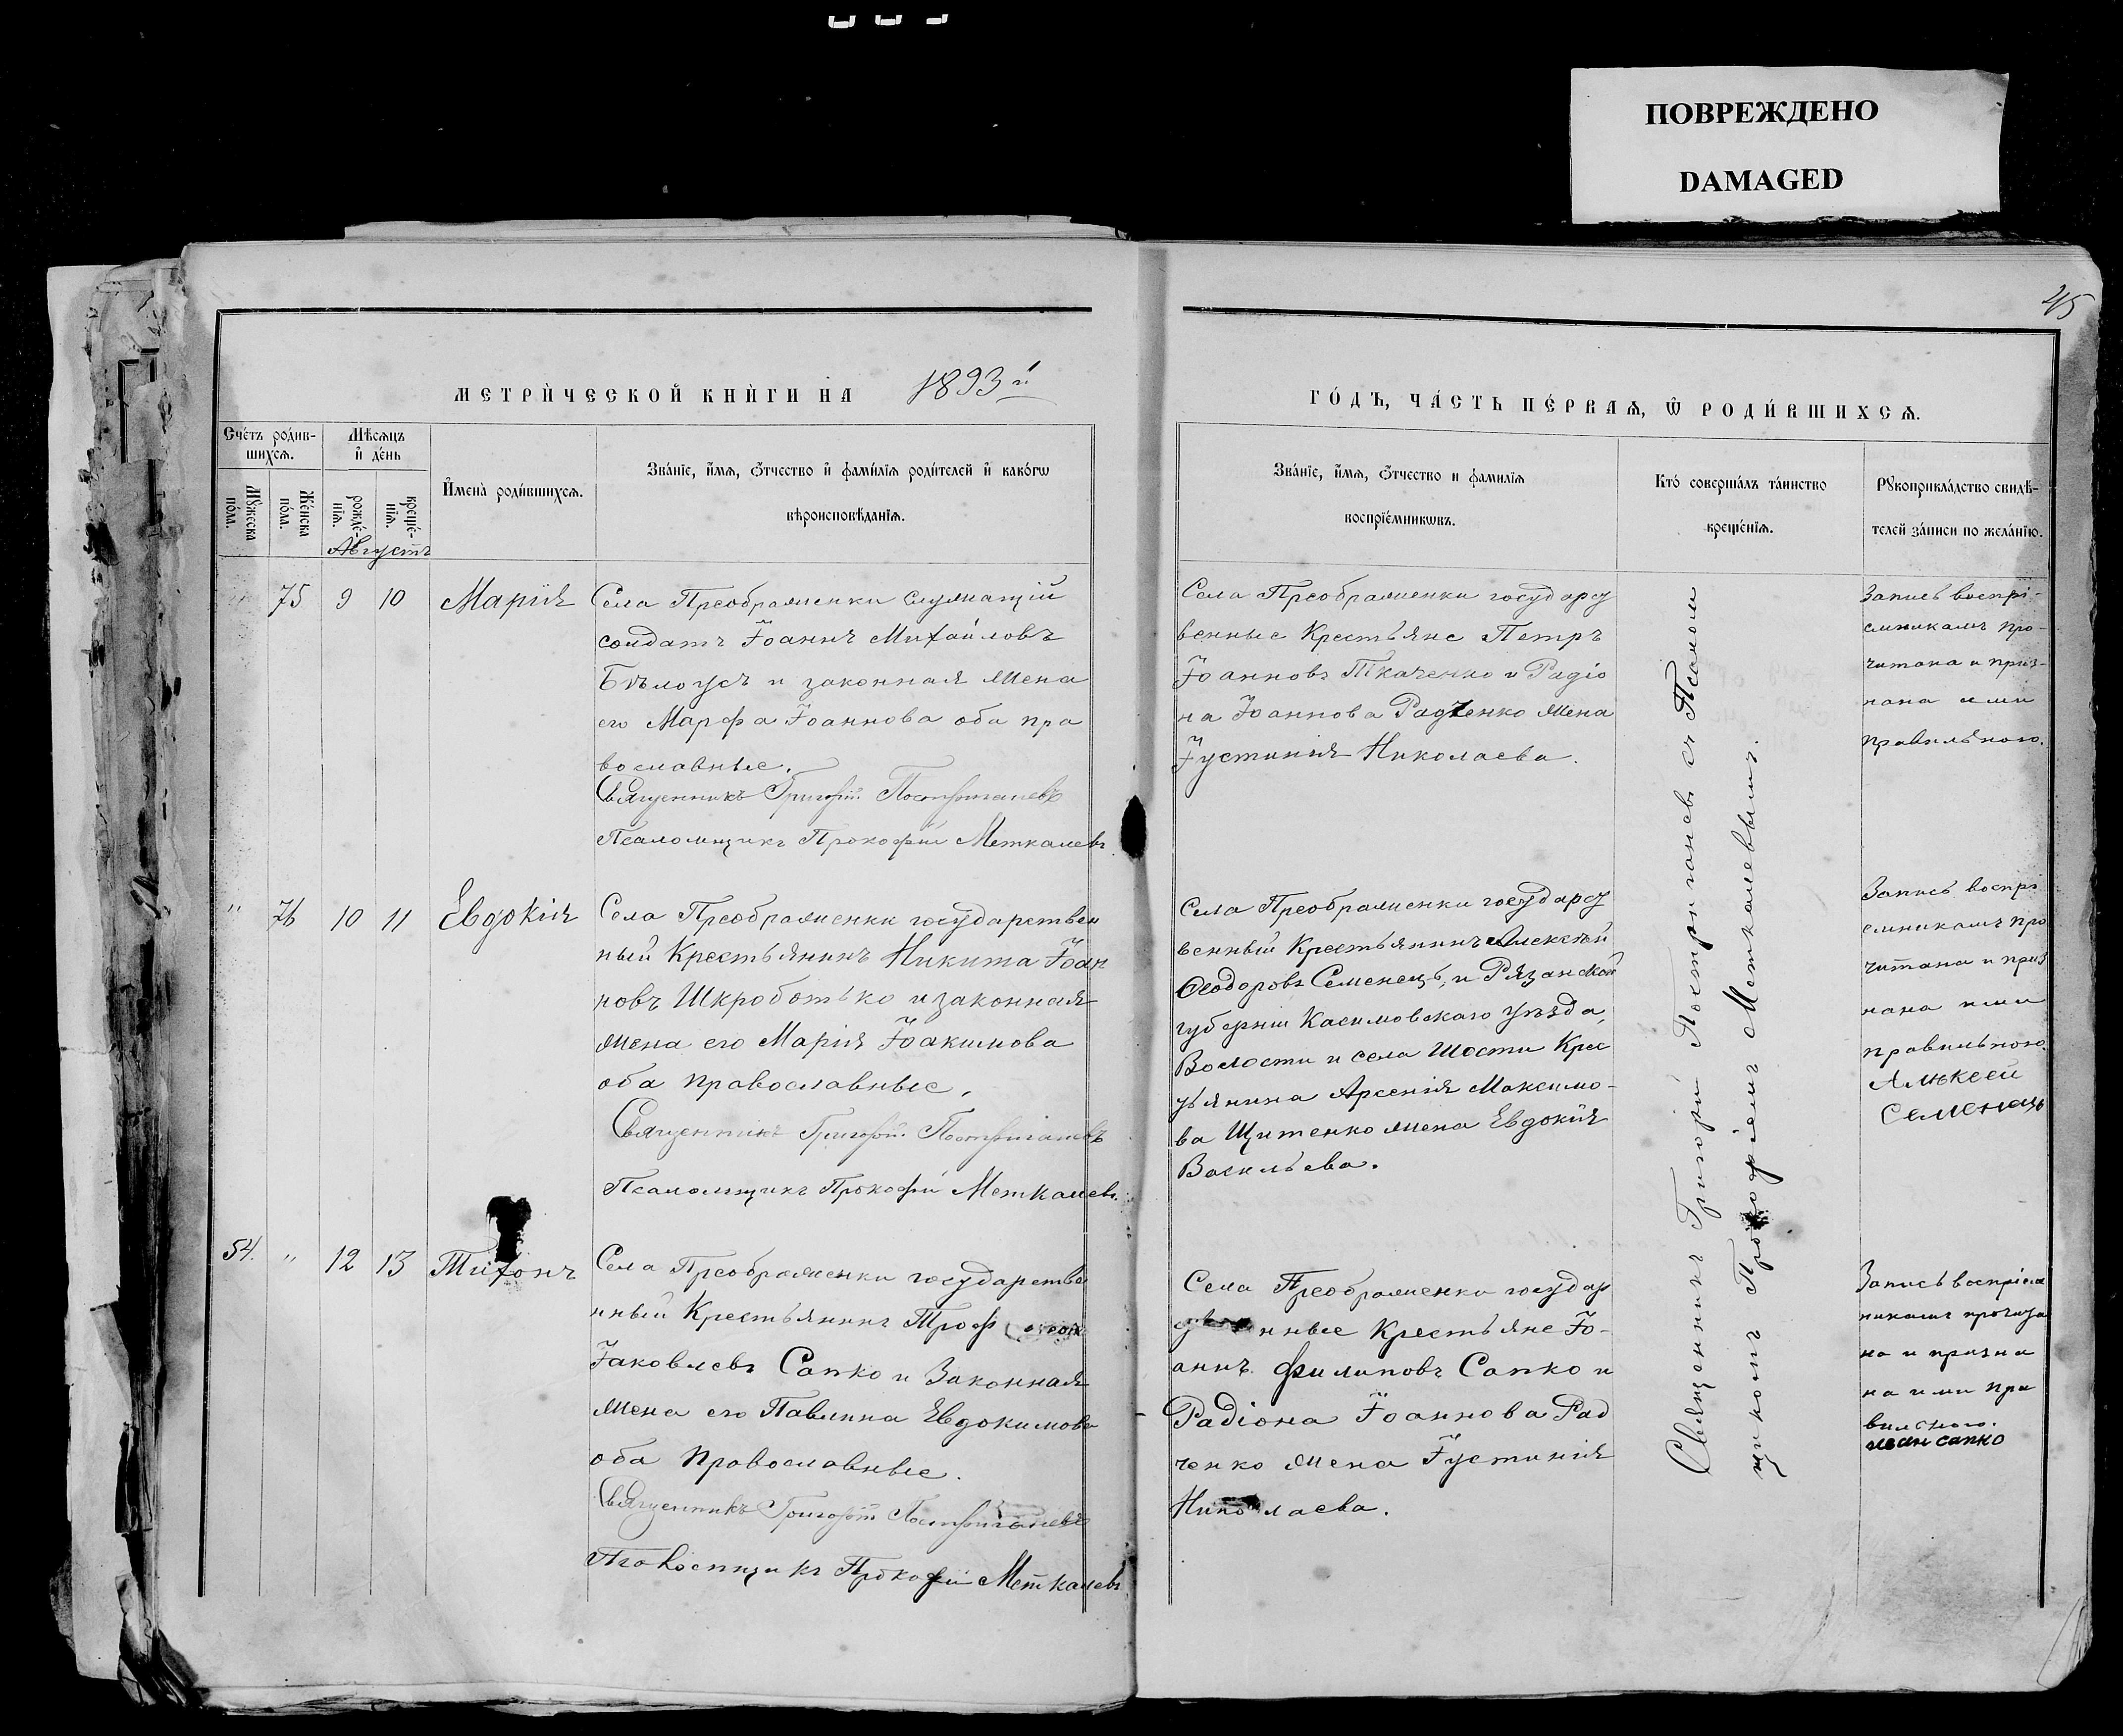 ПОВРЕЖДЕНО
DAMAGED
45
МЕТРИ́ЧЕСКОЙ КНИ́ГИ НА 1893 й
ГО́ДЪ, ЧА́СТЬ ПЕ́РВАѦ, Ѽ РОДИ́ВШИХСѦ.
Сче́тъ роди́в-
шихсѧ.
Мꙋжеска по́ла.
Же́нска по́ла.
Мѣ́сѧцъ
и҆ де́нь
рожде́-
нїѧ.
креще́-
нїѧ.
Августъ
И҆мена̀ роди́вшихсѧ.
Зва́нїе, и҆́мѧ, ѻ҆́тчество и҆ фамѝлїѧ роди́телей и҆ како́гѡ
вѣроисповѣ́данїѧ.
Зва́нїе, и҆́мѧ, ѻ҆́тчество и фамилїѧ
воспрїе́мникѡвъ.
Кто́ соверша́лъ та́инство
креще́нїѧ.
Рꙋкоприкла́дство свидѣ́-
телей за́писи по жела́нїю.
75 9 10 Марія
Села Преображенки служащій
солдатъ Іоаннъ Михайловъ
Бѣлоусъ и законная жена
его Марфа Іоаннова оба пра
вославные.
Священникъ Григорій Постригачевъ
Псаломщикъ Прокофій Меткалевъ
Села Преображенки государст
венные Крестьяне Петръ
Іоанновъ Ткаченко и Радіо
на Іоаннова Радченко жена
Іустинія Николаева.
Запись воспрі-
емникамъ про-
читана и приз-
нана ими
правильною.
" 76 10 11 Евдокія
Села Преображенки государствен
ный Крестьянинъ Никита Іоан
новъ Шкроботько и законная
жена его Марія Іоакимова
оба православные.
Священникъ Григорій Постригачевъ
Псаломщикъ Прокофій Меткалевъ.
Села Преображенки государст
венный Крестьянинъ Алексѣй
Ѳеодоровъ Семенецъ, и Рязанской
губерніи Касимовскаго уѣзда,
Волости и села Шости Крес
тьянина Арсенія Максимо-
ва Щитенко жена Евдокія
Васильева.
Запись воспрі
емникамъ про
читана и приз
нана ими
правильною.
Алѣксей
Семенецъ
54. " 12 13 Тихонъ
Села Преображенки государстве
нный Крестьянинъ Троф
Іаковлевъ Сапко и Законная
жена его Павлина Евдокимова
оба Православные.
Священникъ Григорій Постригачевъ
Прокофій Меткалевъ
Села Преображенки государ
нные Крестьяне Іо-
аннъ Филиповъ Сапко и
Радіона Іоаннова Рад
ченко жена Іустинія
Николаева.
Запись воспріем
никамъ прочита
на и призна
на ими пра
вильною.
иван сапко
Священникъ Григорій Постригачевъ съ Псалом
щикомъ Прокофіемъ Меткалевымъ.